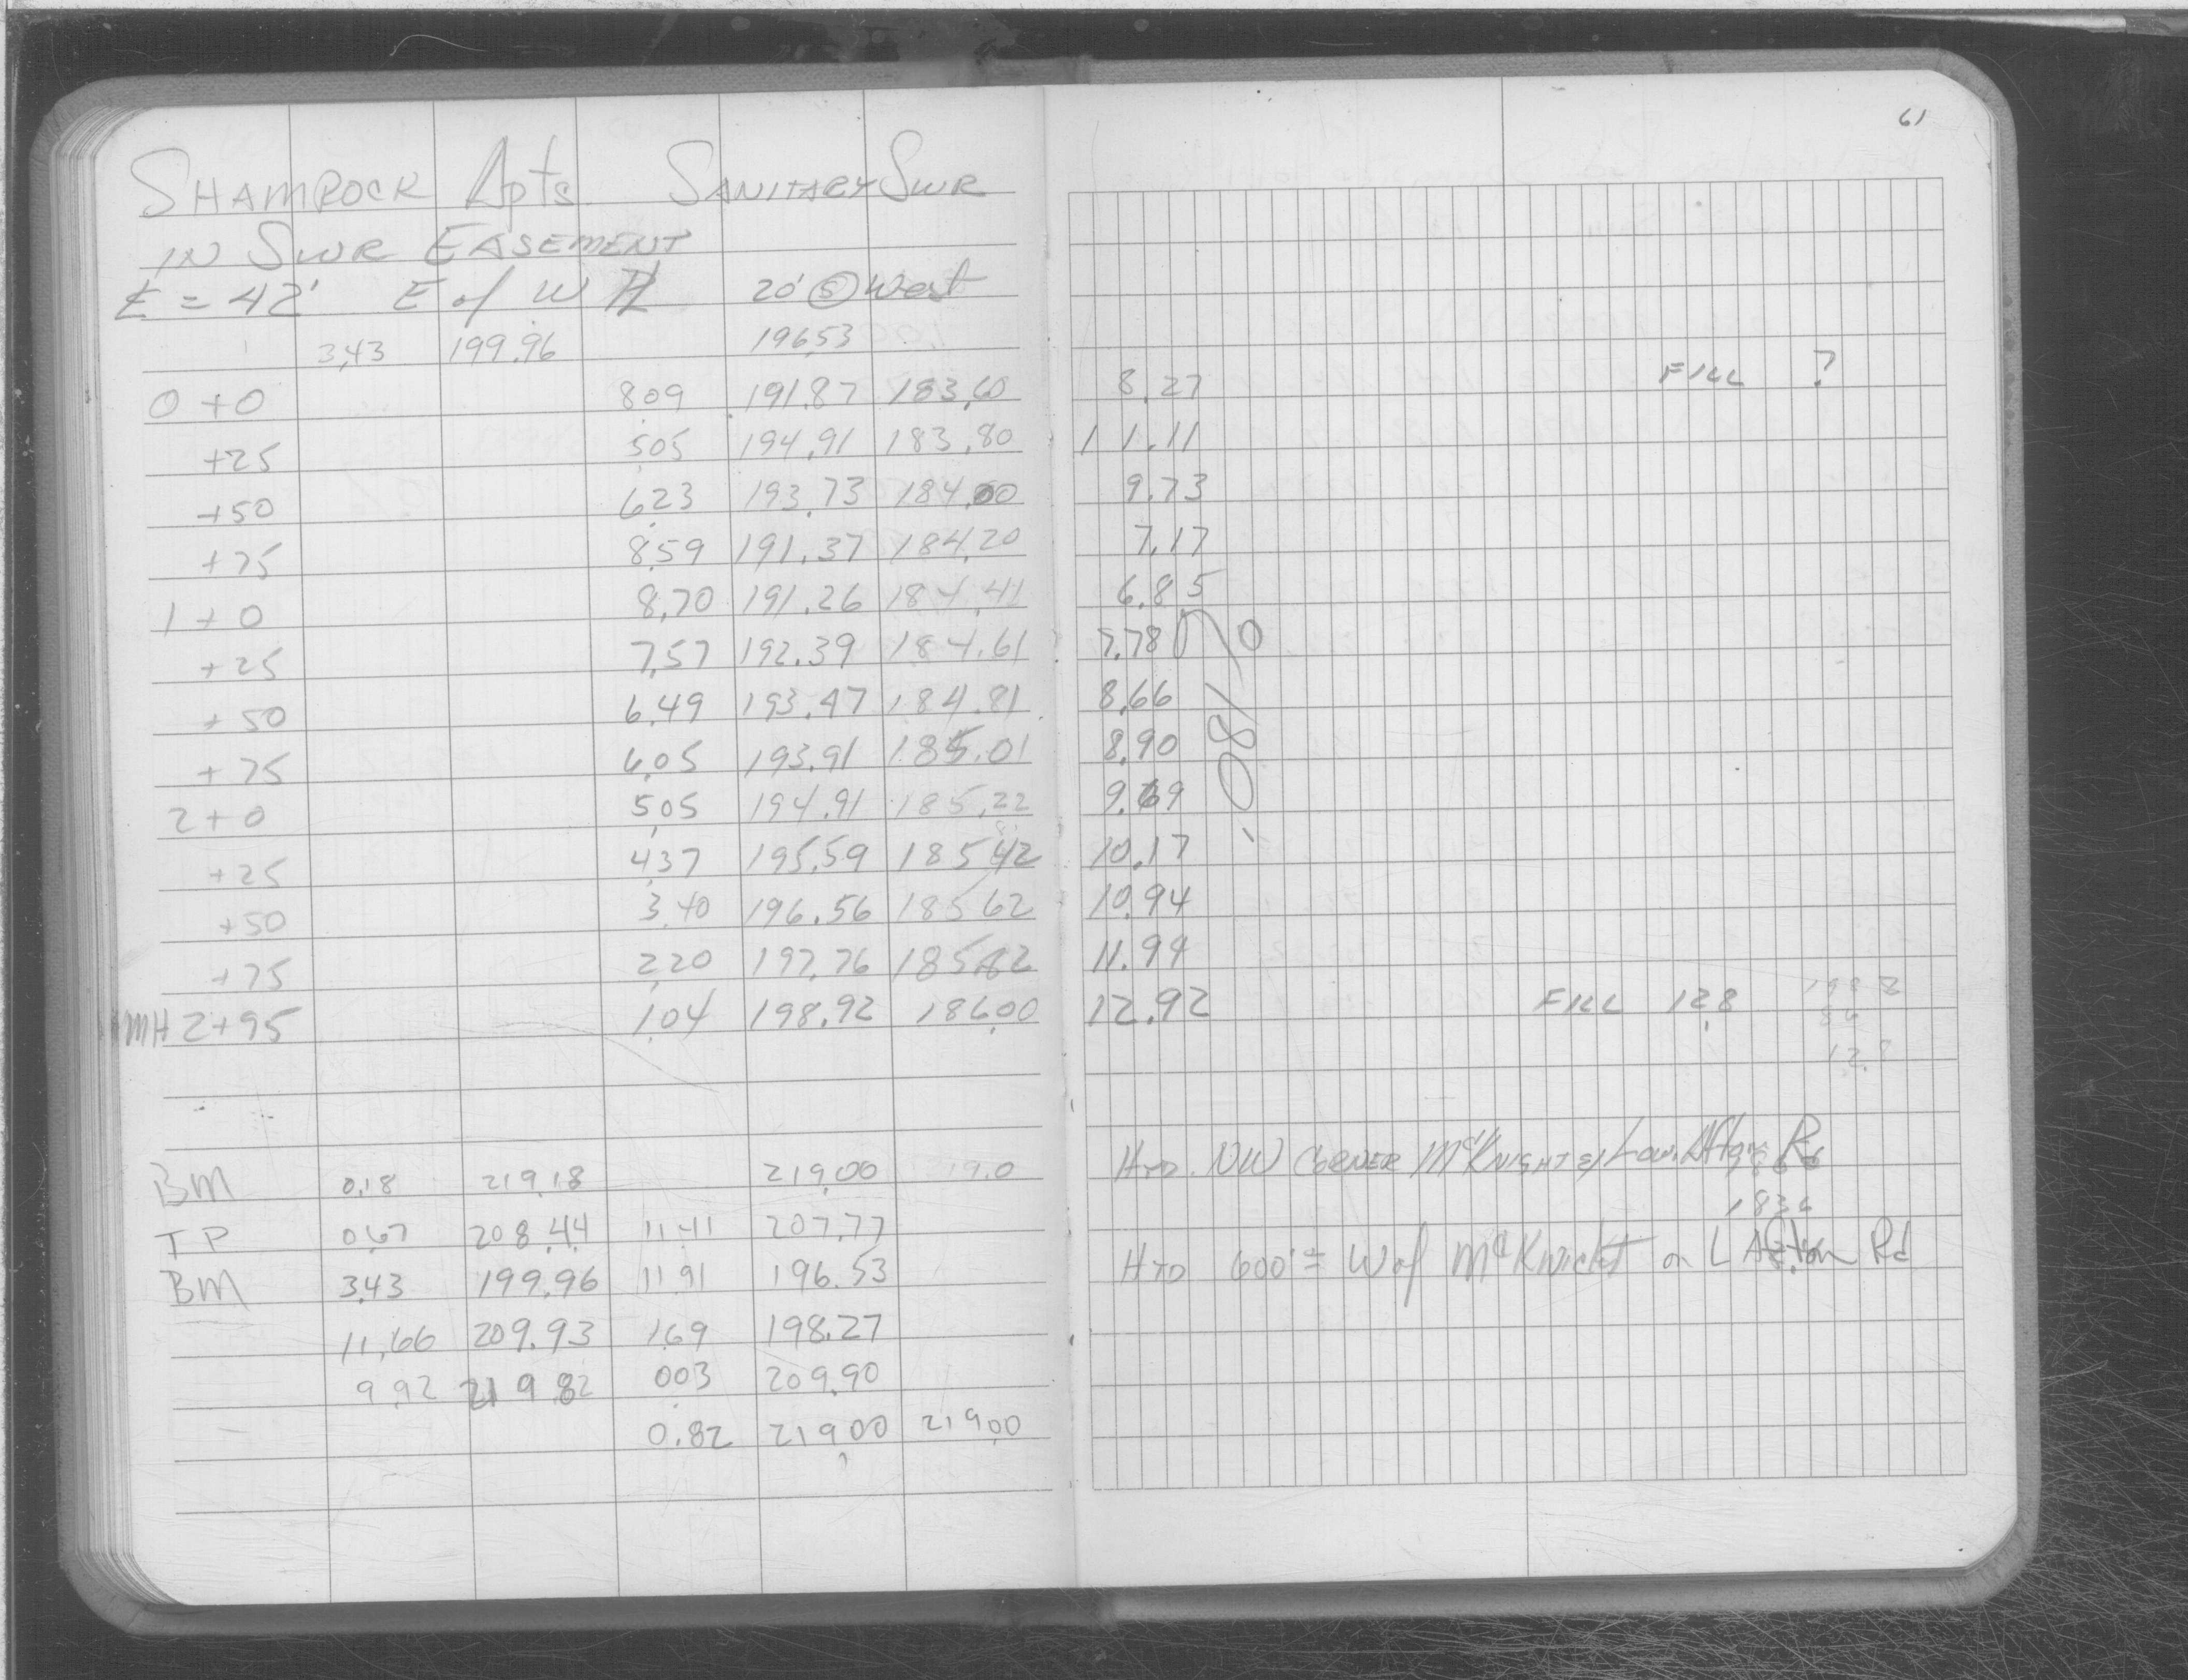 61
SHAMROCK Apts. SANITARY SWR
IN SWR EASEMENT
℄ = 42' E of W ℄ 20' Ⓢ West
3.43 199.96 196.53
0+0 8.09 191.87 183.60 8.27 FILL ?
+25 5.05 194.91 183.80 11.11
+50 6.23 193.73 184.00 9.73
+75 8.59 191.37 184.20 7.17
1+0 8.70 191.26 184.41 6.85
+25 7.57 192.39 184.61 7.78
+50 6.49 193.47 184.81 8.66
+75 6.05 193.91 185.01 8.90
2+0 5.05 194.91 185.22 9.69
+25 4.37 195.59 185.42 10.17
+50 3.40 196.56 185.62 10.94
+75 2.20 197.76 185.82 11.94
MH 2+95 1.04 198.92 186.00 12.92 FILL 12.8
BM 0.18 219.18 219.00 19.0 HYD. NW CORNER McKNIGHT & Low. Afton Rd
1836
TP 0.67 208.44 11.41 207.77
BM 3.43 199.96 11.91 196.53 HYD 600'± W of McKnight on L Afton Rd
11.66 209.93 1.69 198.27
9.92 219.82 0.03 209.90
0.82 219.00 219.00